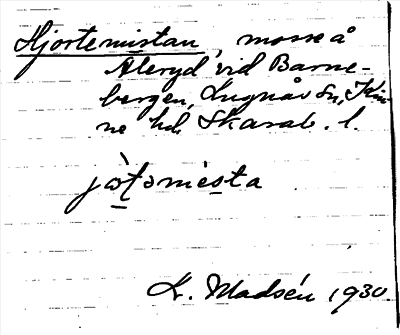 Hjortemistan, mosse å
Aleryd vid Barne-
bergen, Lugnås sn, Kin-
ne hd. Skarab. l.
jȯ̱tǝmɩsta
K. Madsén 1930